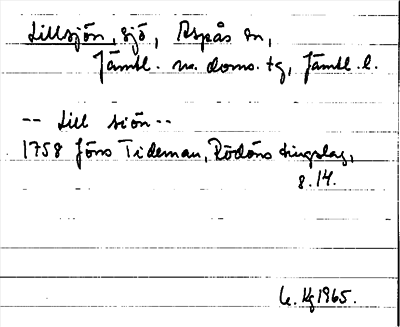 Lillsjön, sjö, Aspås sn,
Jämtl. n. doms. tg, Jämtl. l.
-- Lill siön --
1758 Jöns Tideman, Rödöns tingslag,
s. 14.
Kg 1965.